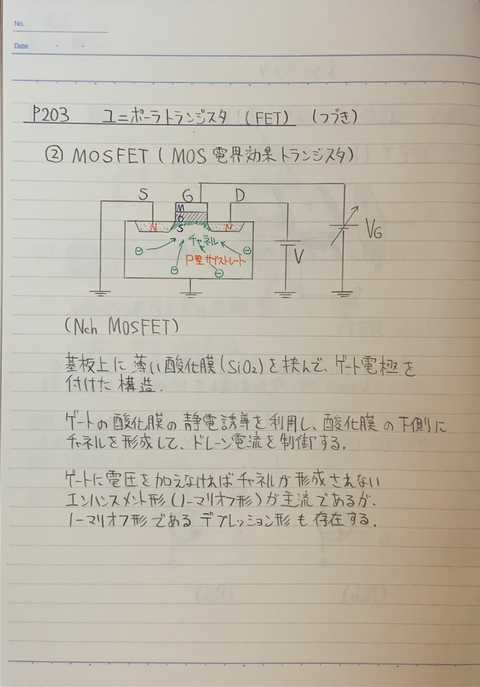 No.
Date
P203 ユニポーラトランジスタ (FET) (つづき)
② MOSFET (MOS 電界効果トランジスタ)
S G D
M
O
S
N N
チャネル
P型サブストレート
⊖ ⊖ ⊖ ⊖
V
VG
(Nch MOSFET)
基板上に薄い酸化膜(SiO2)を挟んで、ゲート電極を
付けた構造.
ゲートの酸化膜の静電誘導を利用し、酸化膜の下側に
チャネルを形成して、ドレーン電流を制御する.
ゲートに電圧を加えなければチャネルが形成されない
エンハンスメント形(ノーマリオフ形)が主流であるが、
ノーマリオフ形であるデプレッション形も存在する.